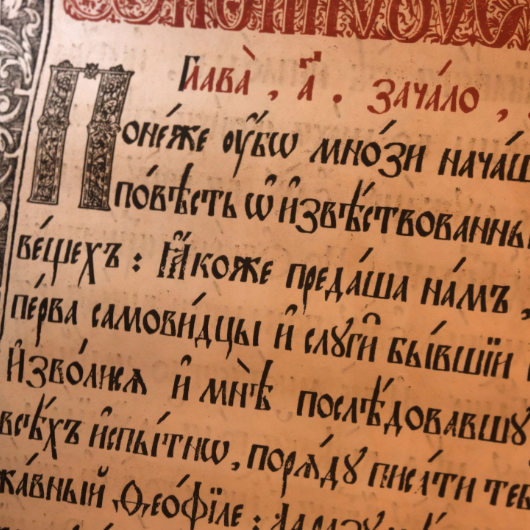 Глава̀, а҃. зача́ло,
Поне́же ᲂу҆́бѡ мно́зи нача́ш
по́вѣсть ѡ҆ и҆звѣ́ствованны
ве́щехъ: Ꙗ҆́коже преда́ша на́мъ,
пе́рва самови́дцы и҆ слꙋги̑ бы́вшїи
И҆зво́лисѧ и҆ мнѣ̀ послѣ́довавшꙋ
всѣ̑хъ и҆спы́тнѡ, порѧ́дꙋ писа́ти теб
жа́вный Ѳео́фїле: